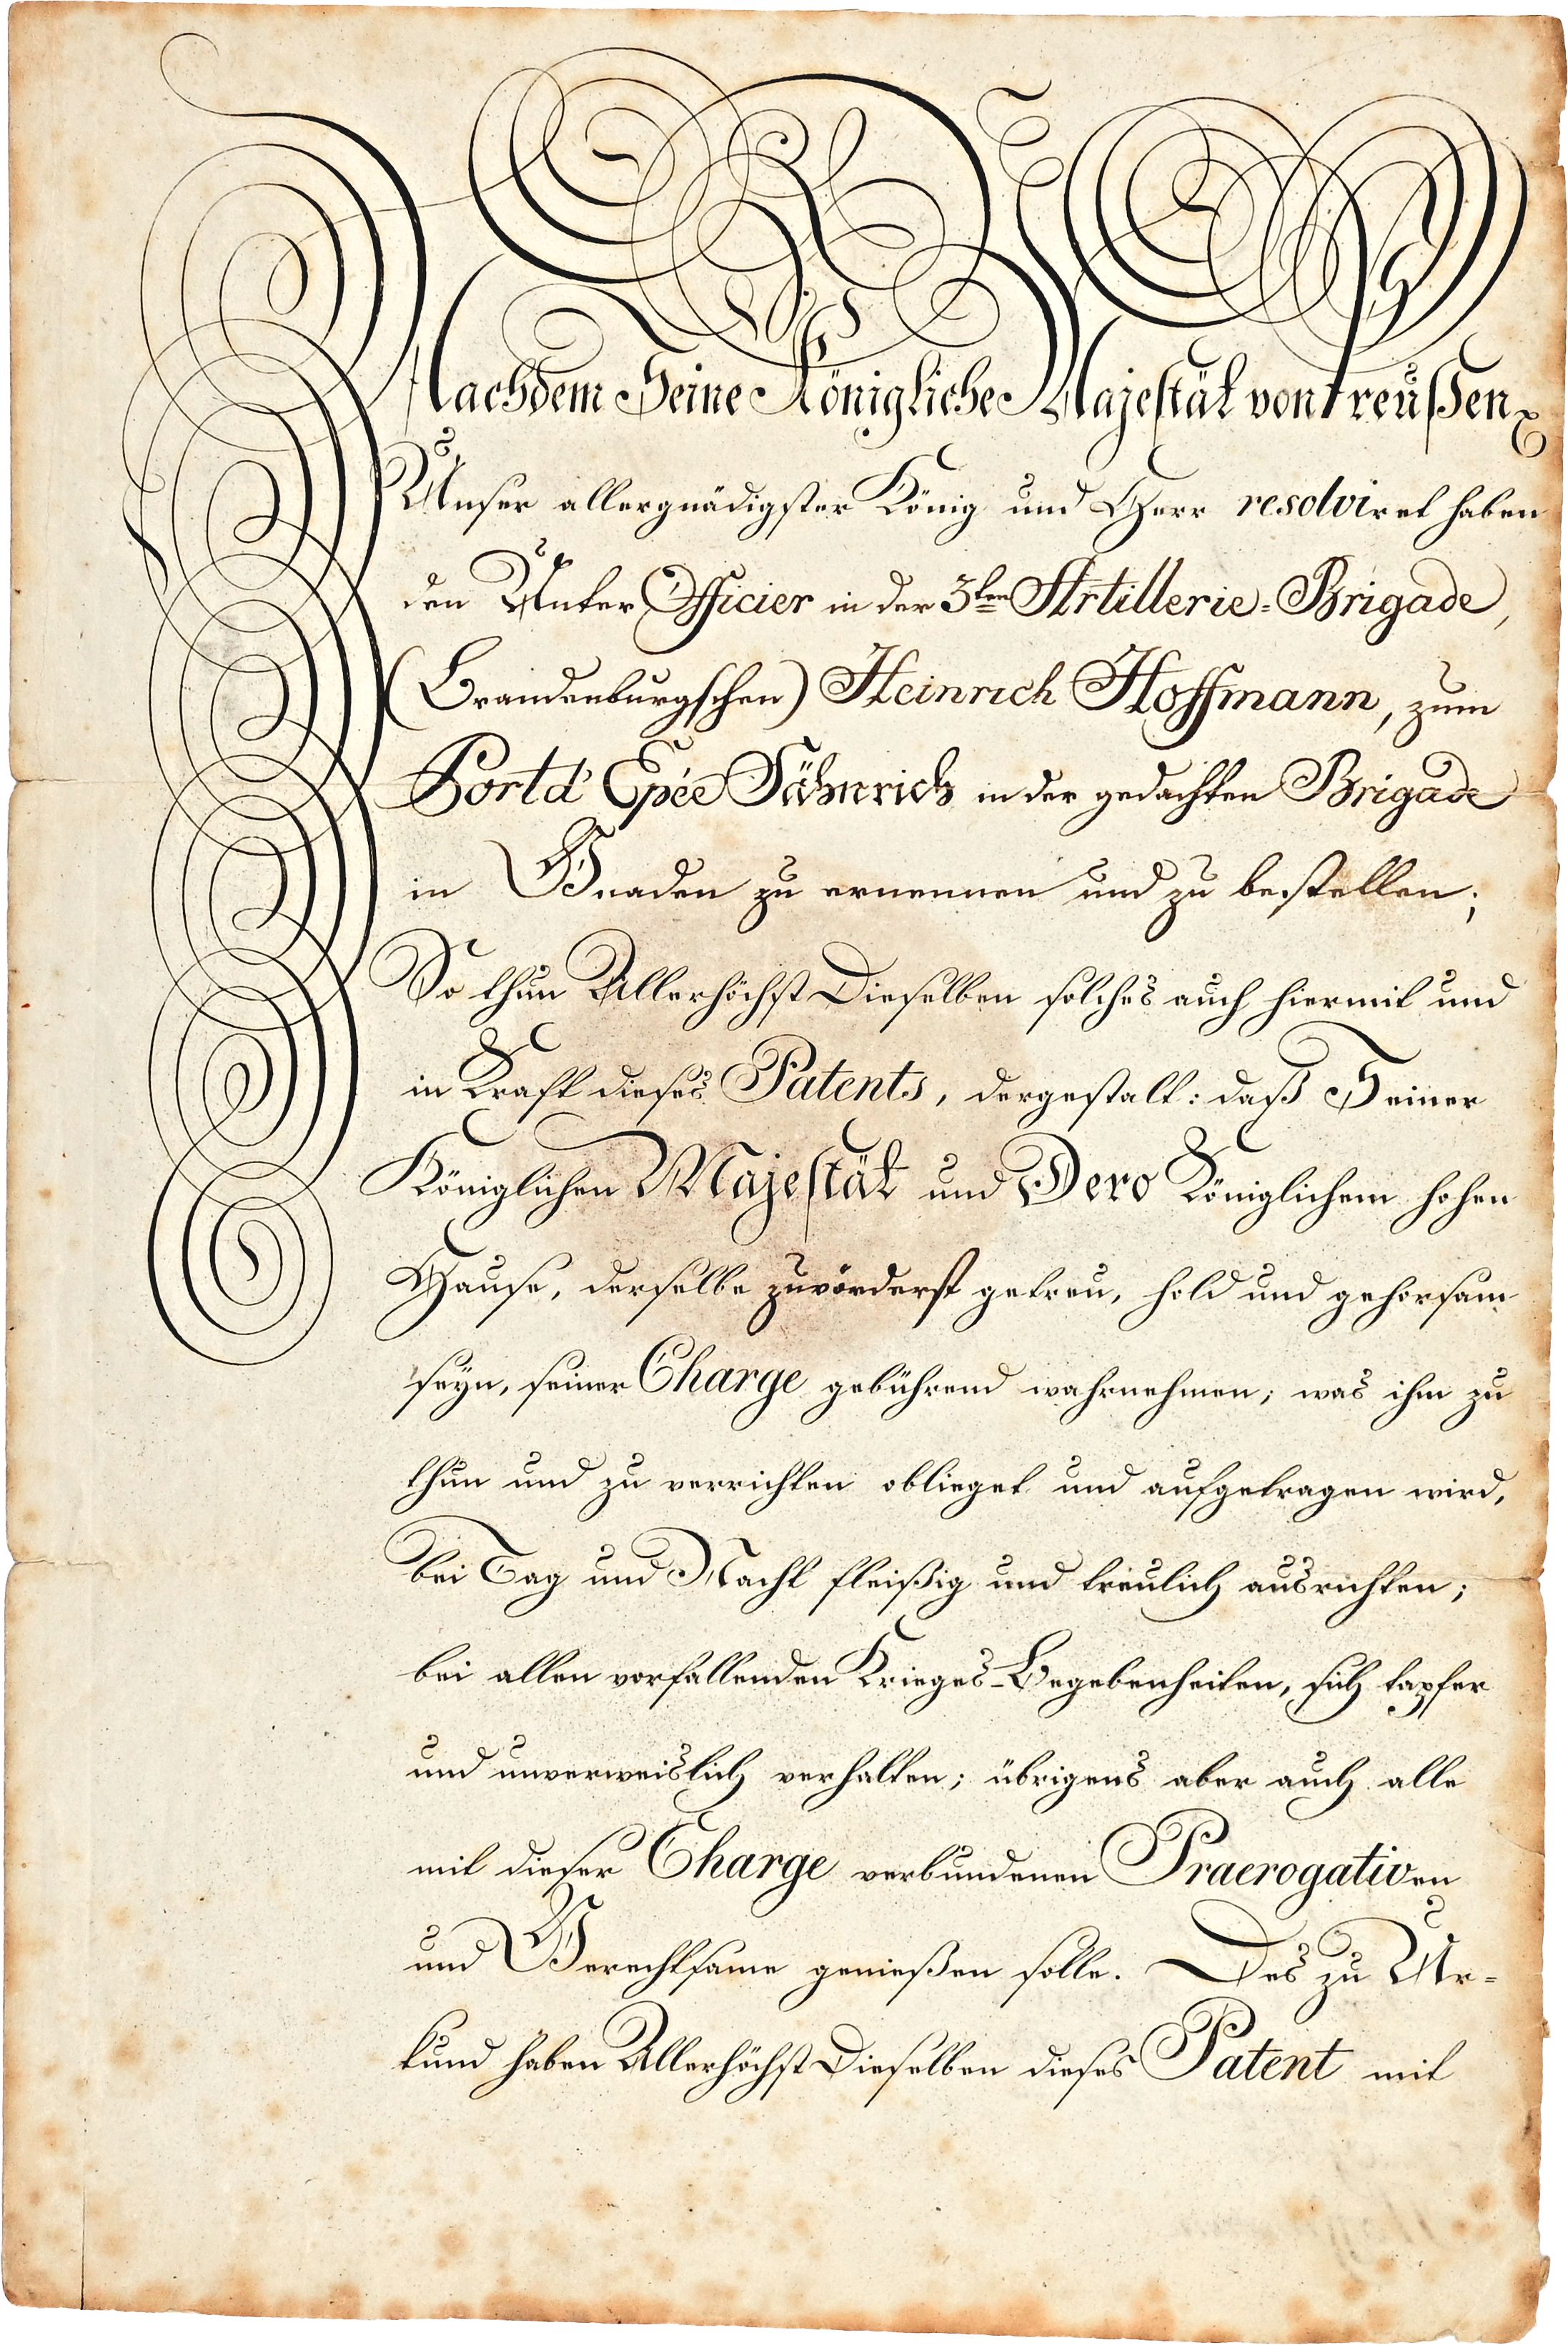 Nachdem Seine Königliche Majestät von Preußen
Unser allergnädigster König und Herr resolviret haben
den Unter Officier in der 3ten Artillerie-Brigade,
(Brandenburgschen) Heinrich Hoffmann, zum
Port d'Epée Fähnrich in der gedachten Brigade
in Gnaden zu ernennen und zu bestellen;
So thun Allerhöchst Dieselben solches auch hiermit und
in Kraft dieses Patents, dergestalt: daß Seiner
Königlichen Majestät und Dero Königlichem hohen
Hause, derselbe zuvörderst getreu, hold und gehorsam
seyn, seiner Charge gebührend wahrnehmen; was ihm zu
thun und zu verrichten oblieget und aufgetragen wird,
bei Tag und Nacht fleißig und treulich ausrichten;
bei allen vorfallenden Krieges-Begebenheiten, sich tapfer
und unverweislich verhalten; übrigens aber auch alle
mit dieser Charge verbundenen Praerogativen
und Gerechtsame genießen solle. Des zu Ur-
kund haben Allerhöchst Dieselben dieses Patent mit